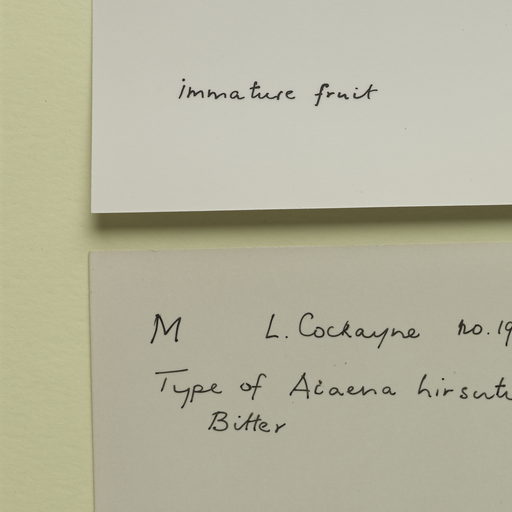 immature fruit
M L. Cockayne no. 19
Type of Acaena hirsutu
Bitter